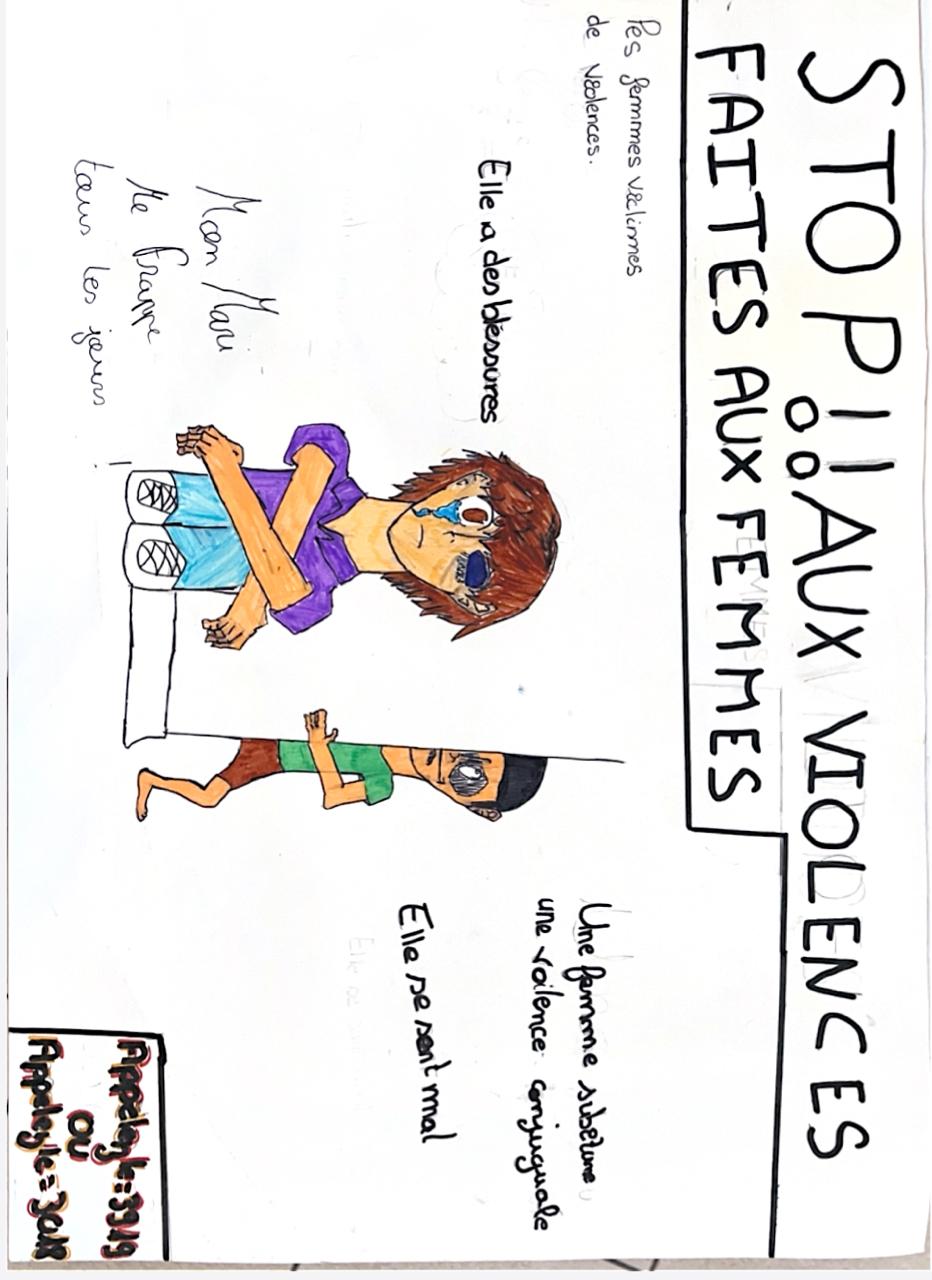 STOP!! AUX VIOLENCES
FAITES AUX FEMMES
Des femmes victimes
de violences.
Elle a des bléssures
Mon Mari
Me Frappe
tous les jours !
Une femme
une voilence conjuguale
Elle se sent mal
Appeler le = 3919
ou